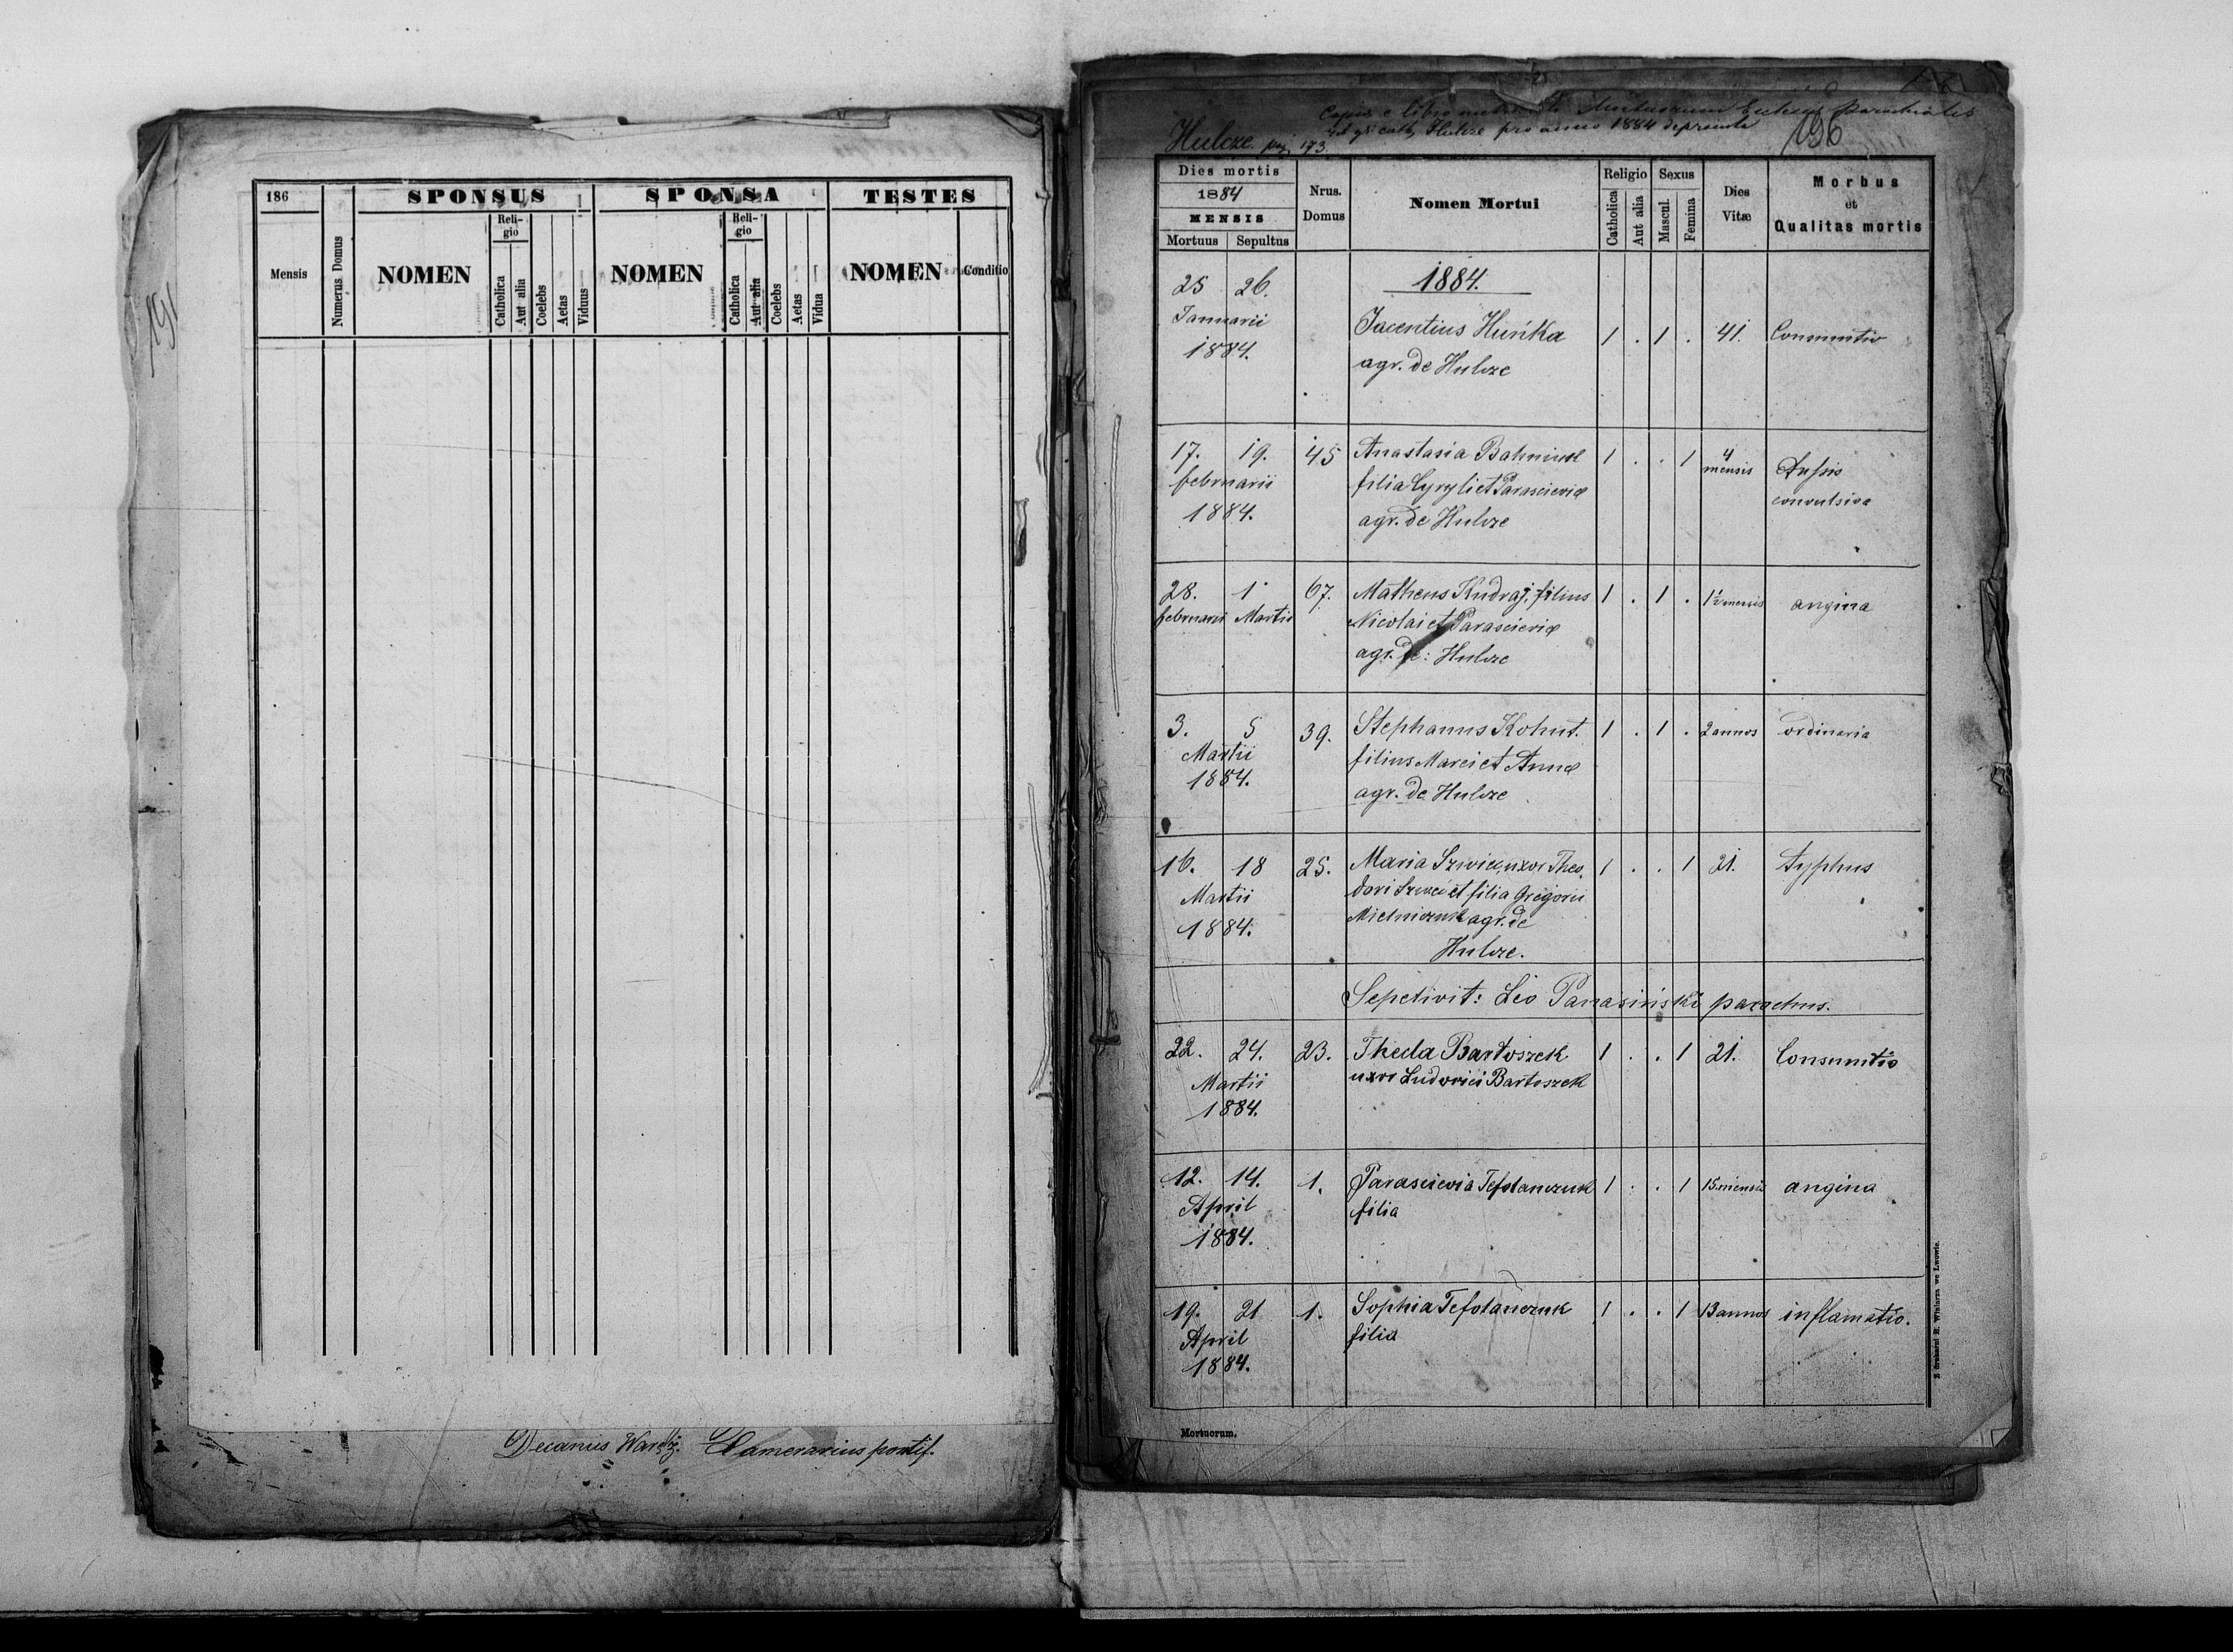 191
186
SPONSUS
SPONSA
TESTES
Mensis
Numerus Domus
NOMEN
Reli-
gio
Catholica
Aut alia
Coelebs
Aetas
Viduus
NOMEN
Reli-
gio
Catholica
Aut alia
Coelebs
Aetas
Vidua
NOMEN
Conditio
Decanus Waręz. Camerarius pontif.
Copia e libro Mortuorum Ecclesiae parochialis
rit gr cath Hulcze pro anno 1884 deprompta
Hulcze. pag 173.
196
Dies mortis
1884
MENSIS
Mortuus Sepultus
Nrus.
Domus
Nomen Mortui
Religio
Catholica
Aut alia
Sexus
Mascul.
Femina
Dies
Vitæ
Morbus
et
Qualitas mortis
1884.
25 26.
Januarii
1884.
Jacentius Huńka
agr. de Hulcze
1 . 1 . 41. Consumtio
17. 19. 45 Anastasia Bahniuk 1 . . 1 4
mensis
februarii
1884.
filia Cyryli et Parascieviæ
agr. de Hulcze
Tussis
convulsiva
28. 1 67. Matheus Kudraj, filius 1 . 1 . 1½ mensis angina
februarii Martii
Nicolai et Parascieviæ
agr. de: Hulcze
3. 5 39. Stephanus Kohut. 1 . 1 . 2 annos ordinaria
Martii
1884.
filius Marci et Annæ
agr. de Hulcze
16. 18 25. Maria Szwiec, uxor Theo- 1 . . 1 21. typhus
Martii
1884.
dori Szwec et filia Gregorii
Mielniczuk agr. de
Hulcze.
Sepelivit: Leo Panasiński parochus.
22. 24. 23. Thecla Bartoszek 1 . . 1 21. Consumtio
Martii
1884.
uxor Ludovici Bartoszek
12. 14. 1. Parascievia Tefolanczuk 1 . . 1 15. mensis angina
April
1884.
filia
19. 21 1. Sophia Tefolanczuk 1 . . 1 13 annos inflamatio.
April
1884.
filia
Mortuorum.
Z drukarni E. Winiarza we Lwowie.